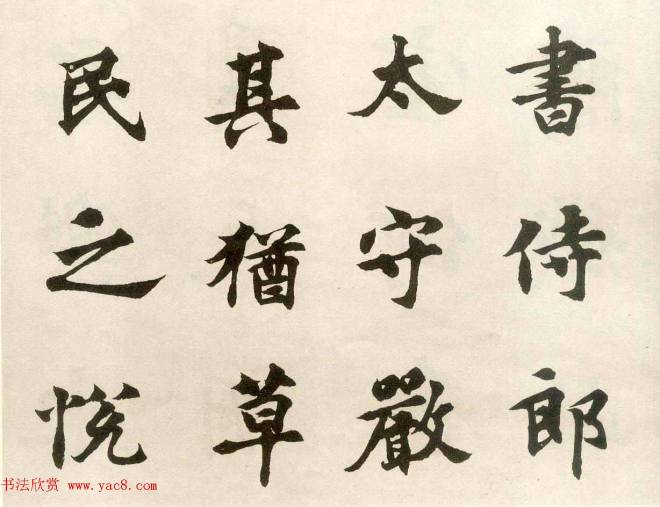 書侍郎
太守嚴
其猶草
民之悅
书法欣赏 www.yac8.com